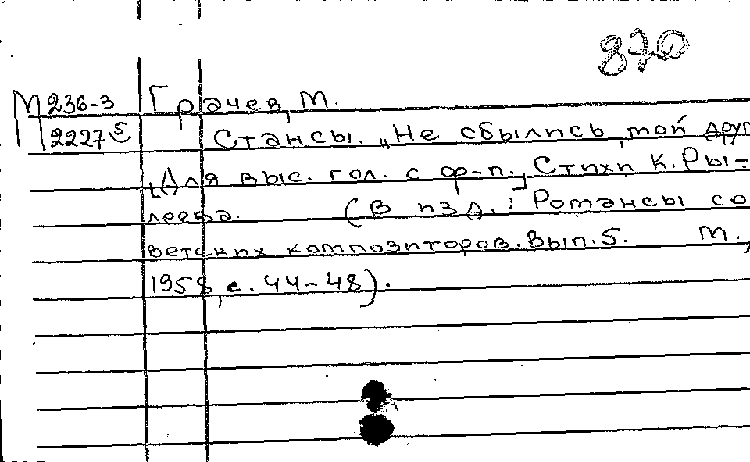 870
М 236-3 Грачев, М.
П 2227 Стансы. „Не сбылись, мой друг
[Для выс. гол. с ф-п.] Стихи К. Ры=
леева. (В изд.: Романсы со
ветских композиторов. Вып. 5. М.,
1958, с. 44-48).